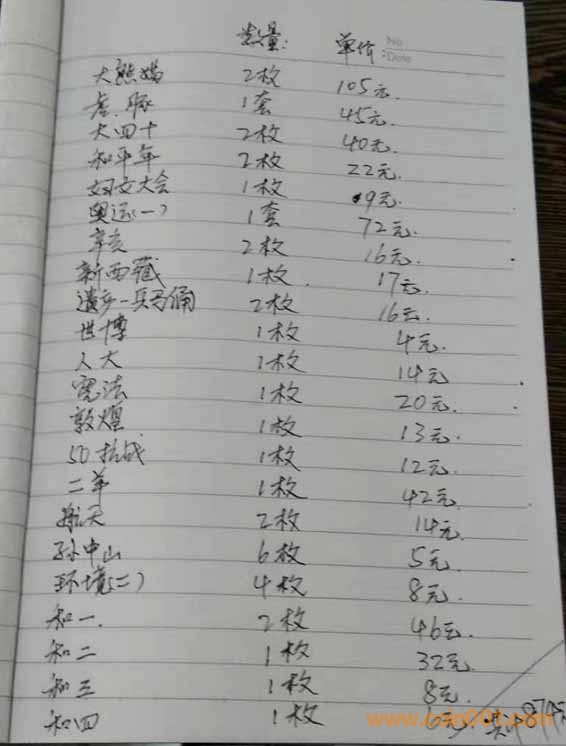 数量: 单价: No
Date
大熊猫 2枚 105元.
龙.豚 1套 45元.
大四十 2枚 40元.
和平年 2枚 22元.
妇女大会 1枚 9元.
奥运(一) 1套 72元.
辛亥 2枚 16元.
新西藏 1枚. 17元.
遗产一兵马俑 2枚 16元.
世博 1枚 4元.
人大 1枚 14元.
宪法 1枚 20元.
敦煌 1枚 13元.
50抗战 1枚 12元.
二羊 1枚 42元.
航天 2枚 14元.
孙中山 6枚 5元.
环境(二) 4枚 8元.
和一. 2枚 46元.
和二 1枚 32元.
和三 1枚 8元.
和四 1枚 6元.